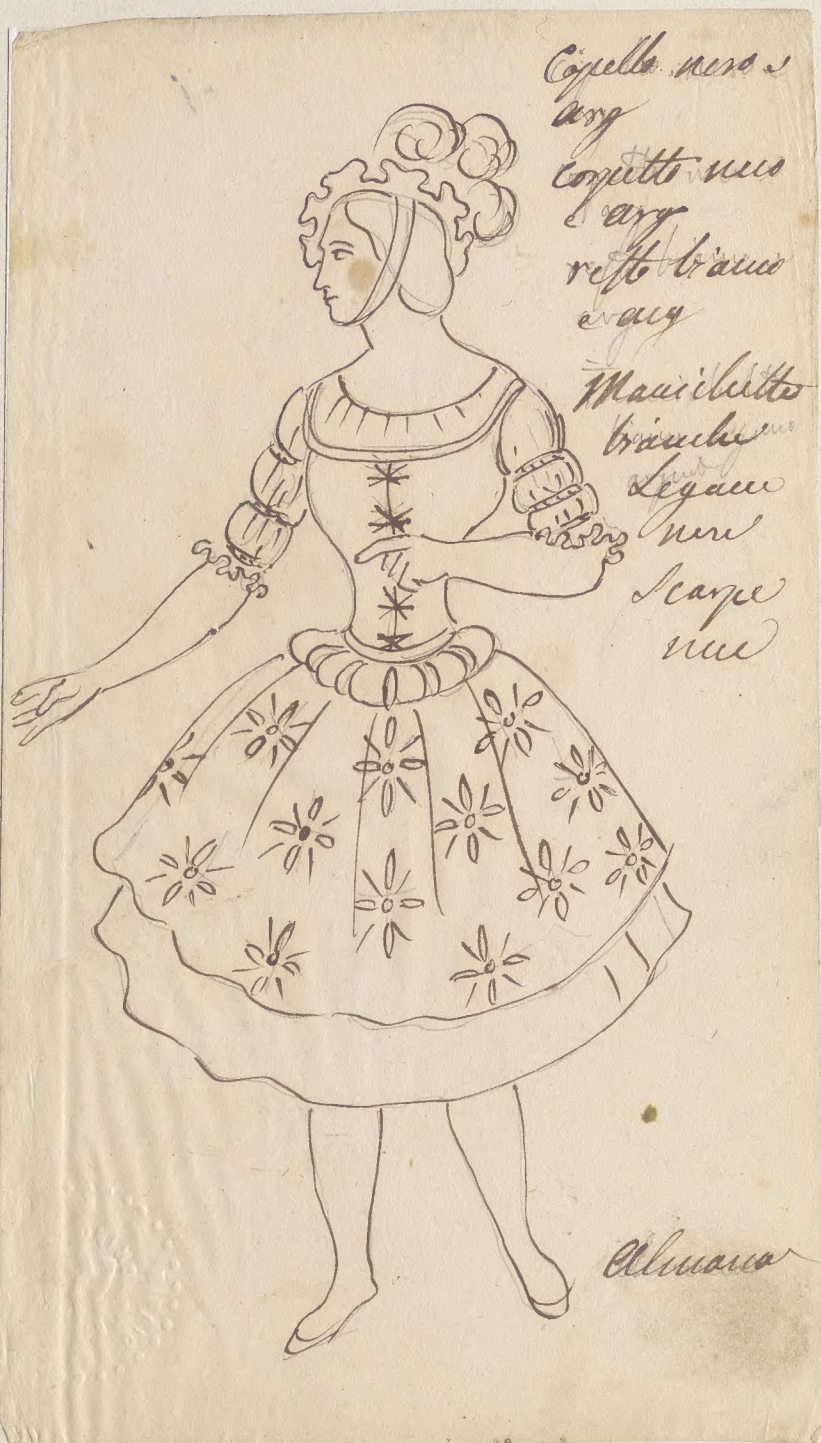 Capello nero e
arg
corpetto nero
e arg
veste bianco
e arg
Manichette
bianche
Legacci
neri
Scarpe
nere